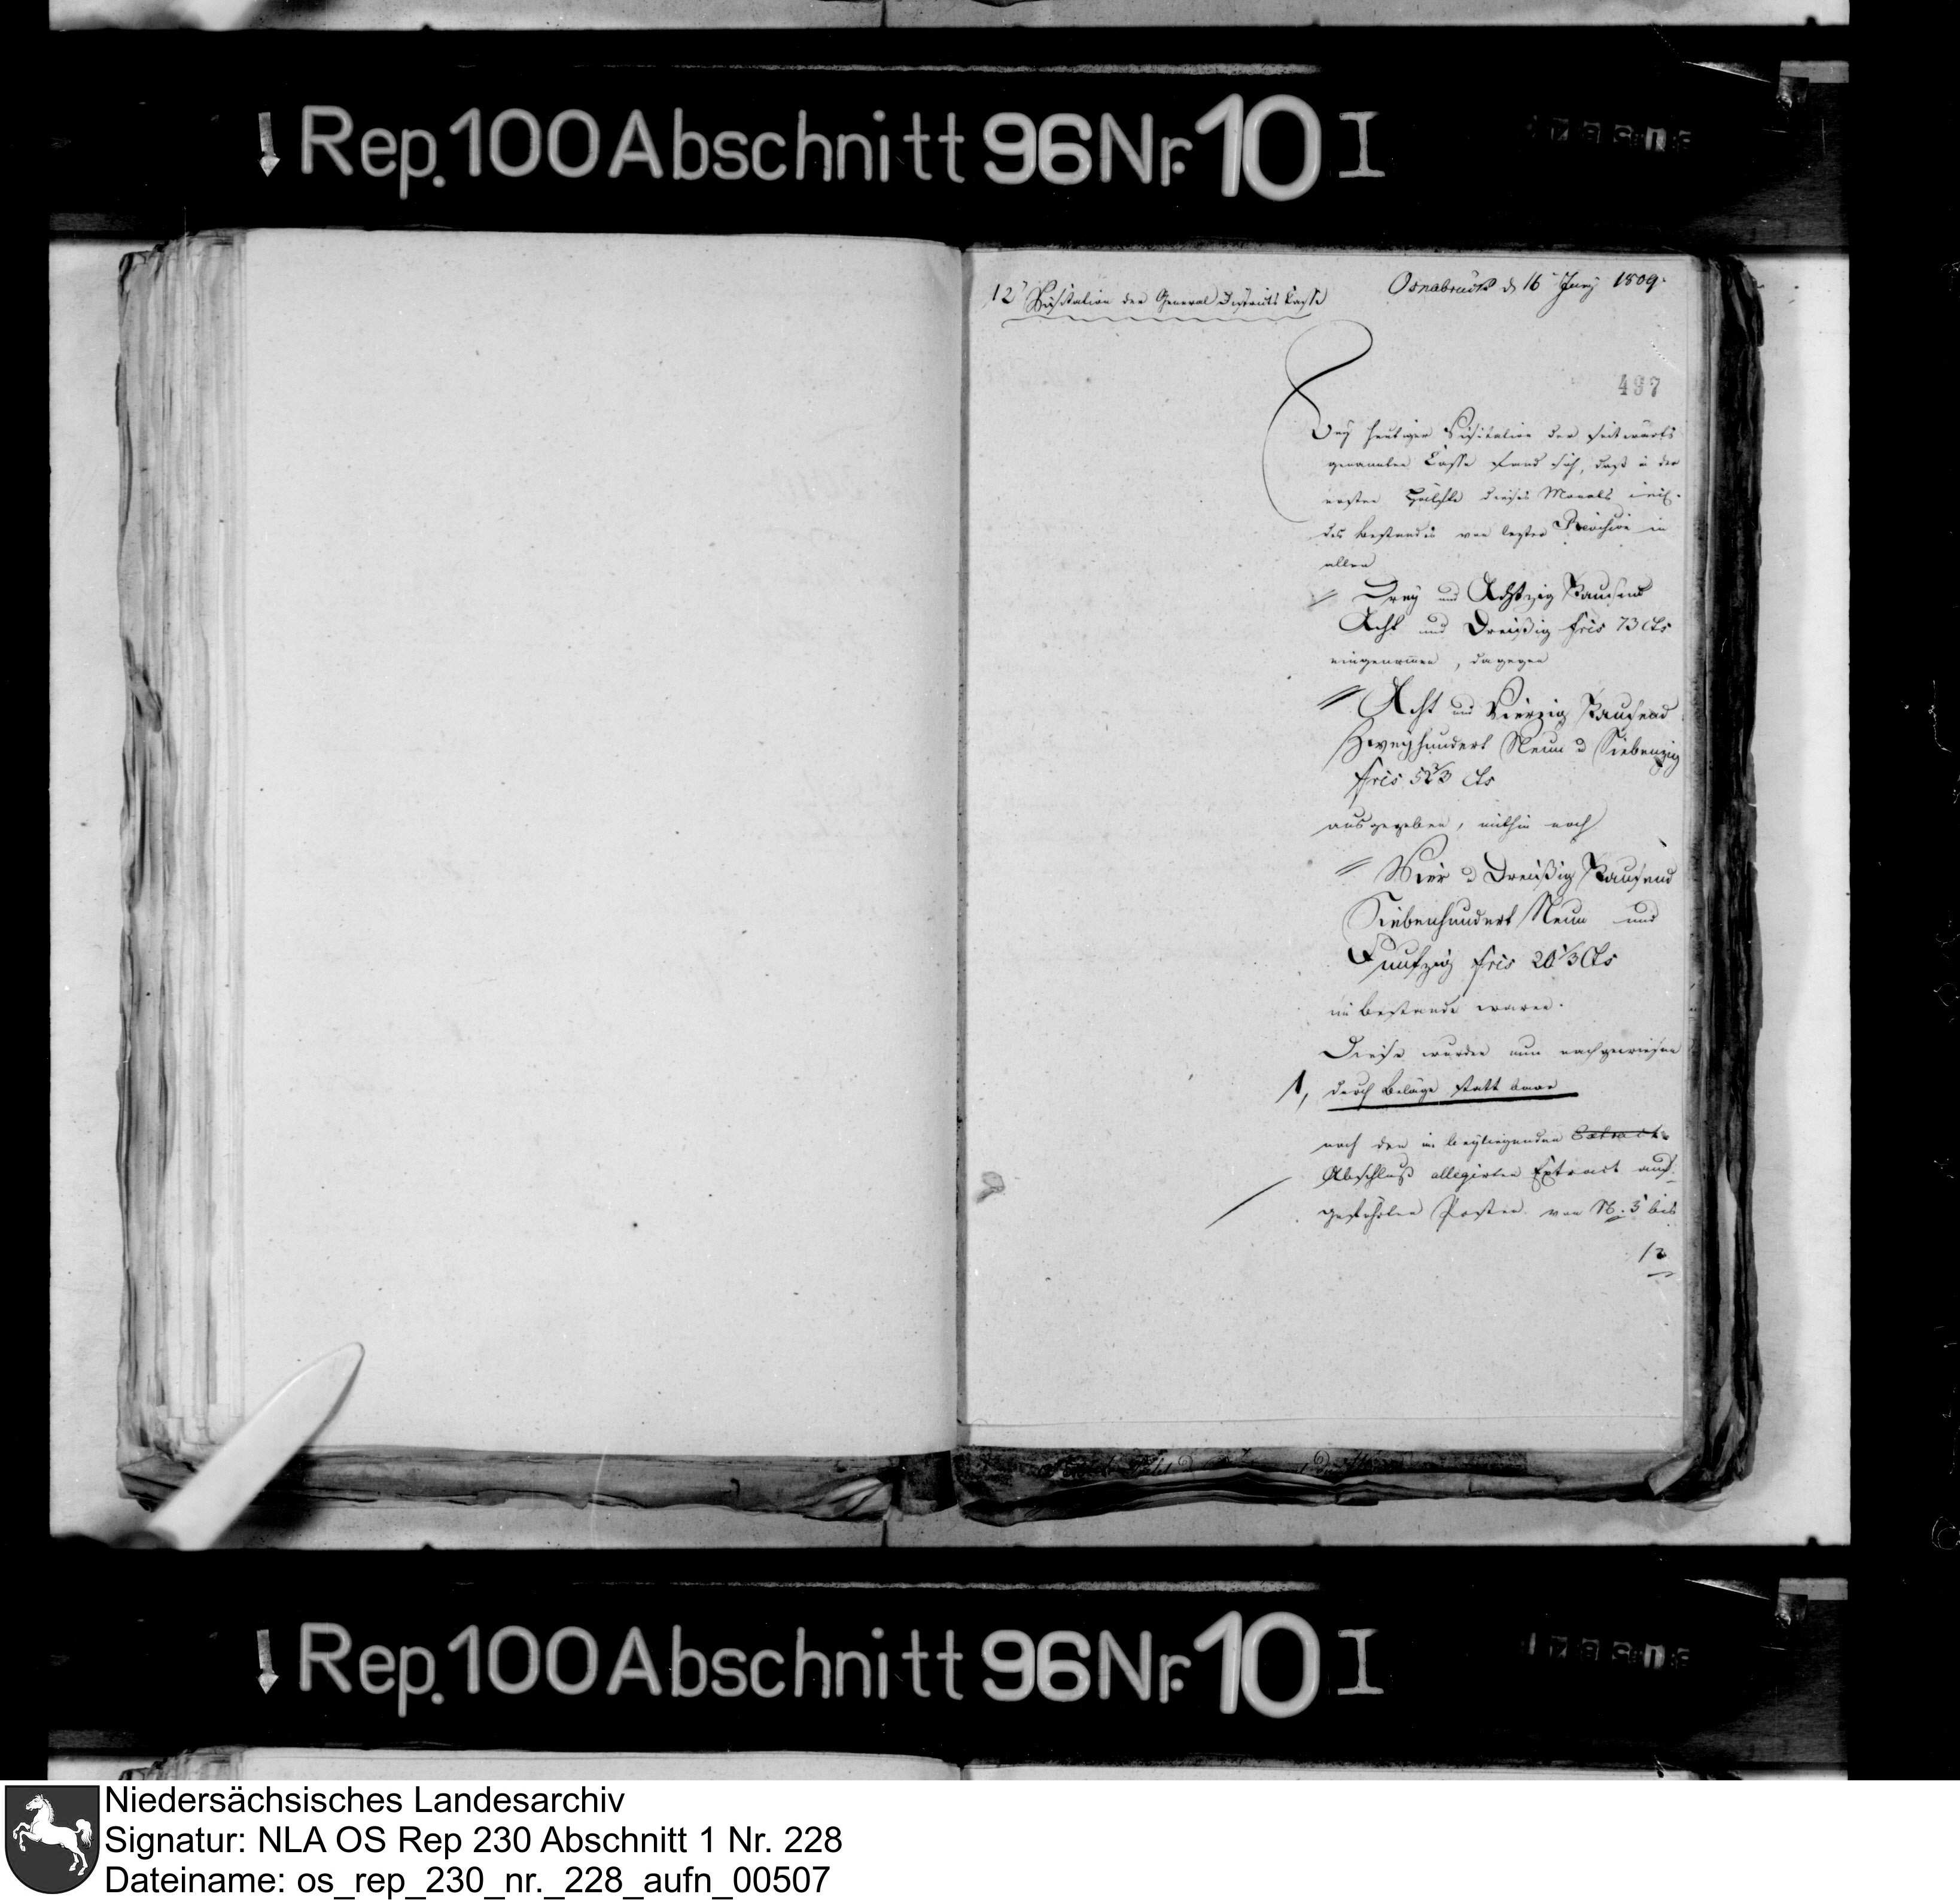 Rep. 100 Abschnitt 96 Nr. 10 I
12' Visitation der General Districts Casse
Osnabrück d 16 Juny 1809.
497
Bey heutiger Visitation der seitwärts
genannten Casse fand sich, daß in der
ersten Hälfte dieses Monats incl.
des Bestandes von letzter Revision in
allen
Drey und Achtzig Tausend
Acht und Dreißig frcs 73 Cts
eingenommen, dagegen
Acht und Vierzig Tausend
Zweyhundert Neun u Siebenzig
frcs 52 2/3 Cts
ausgegeben, mithin noch
Vier u Dreißig Tausend
Siebenhundert Neun und
Funfzig frcs 20 1/3 Cts
im Bestande waren.
Diese wurden nun nachgewiesen
1, durch Beläge statt baar
nach den im beyliegenden Extract
Abschluß allegirten Extract auf
geführten Posten von N. 3 bis
12
Rep. 100 Abschnitt 96 Nr. 10 I
Niedersächsisches Landesarchiv
Signatur: NLA OS Rep 230 Abschnitt 1 Nr. 228
Dateiname: os_rep_230_nr._228_aufn_00507